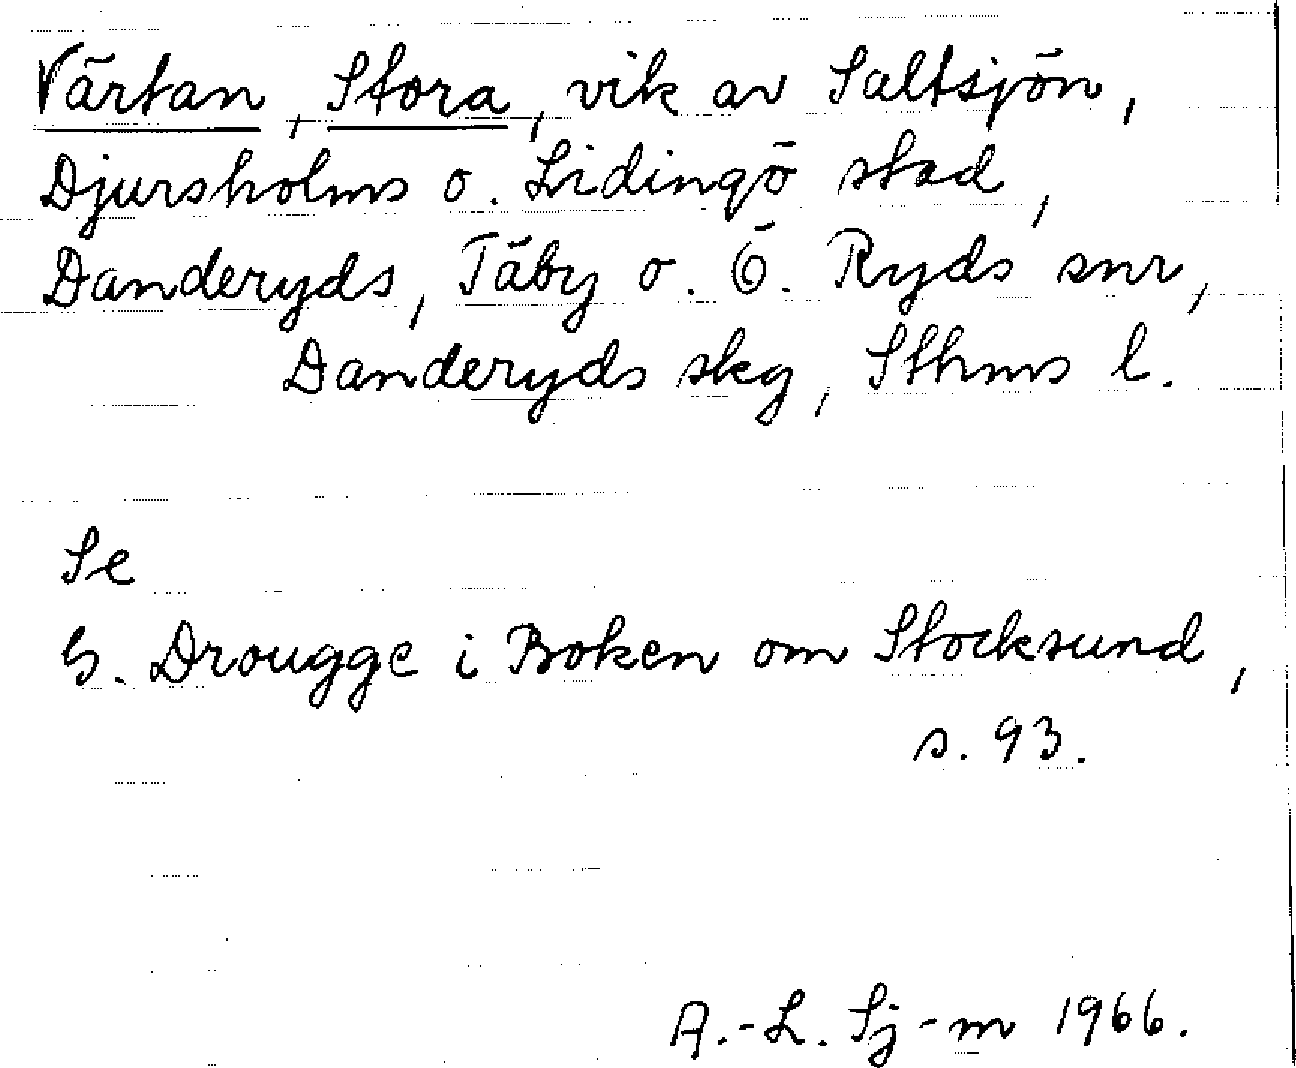 Värtan, Stora, vik av Saltsjön,
Djursholms o. Lidingö stad,
Danderyds, Täby o. Ö. Ryds snr,
Danderyds skg, Sthms l.
Se
G. Drougge i Boken om Stocksund,
s. 93.
A.-L. Sj-m 1966.